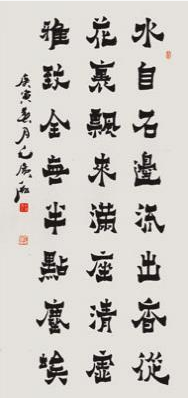 水自石邊流出香從
花裏飄來滿座清虛
雅致全無半點塵埃
庚寅春月毛廣淞